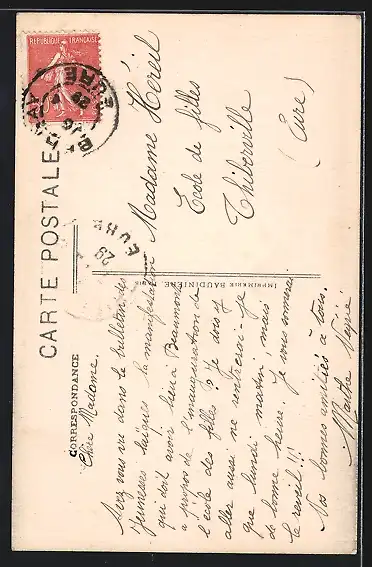 CARTE POSTALE
CORRESPONDANCE
Chère Madame,
Avez vous vu dans le bulletin des
Jeunesses laïques la manifestation
qui doit avoir lieu à Beaumont
a propos de l'inauguration de
l'école des filles ? Je dois y
aller aussi ne rentrerai-je
que lundi matin, mais
de bonne heure. Je vous sonnerai
le réveil !!!
Nos bonnes amitiés à tous.
Marthe
IMPRIMERIE BAUDINIÈRE
Madame Héreil
École de filles
Thiberville
(Eure)
REPUBLIQUE FRANÇAISE
EURE
29
EURE